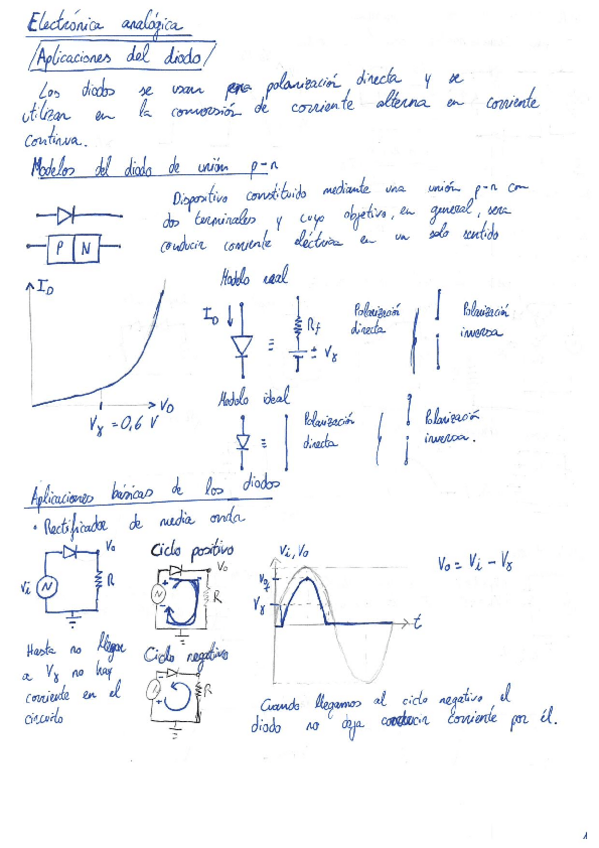 Electrónica analógica
Aplicaciones del diodo
Los diodos se usan polarización directa y se
utilizan en la conversión de corriente alterna en corriente
continua.
Modelos del diodo de unión p-n
Dispositivo constituido mediante una unión p-n con
dos terminales y cuyo objetivo, en general, sera
conducir corriente eléctrica en un solo sentido
P N
I_D
V_D
Vγ = 0,6 V
Modelo real
I_D
≡
R_f
± Vγ
Polarización
directa
Polarización
inversa
Modelo ideal
≡
Polarización
directa
Polarización
inversa.
Aplicaciones básicas de los diodos
• Rectificador de media onda
Vi
Vo
R
Ciclo positivo
+
-
Vo
R
Ciclo negativo
-
+
R
Vi, Vo
Vγ
t
Vo = Vi - Vγ
Hasta no llegar
a Vγ no hay
corriente en el
circuito
Cuando llegamos al ciclo negativo el
diodo no deja conducir corriente por él.